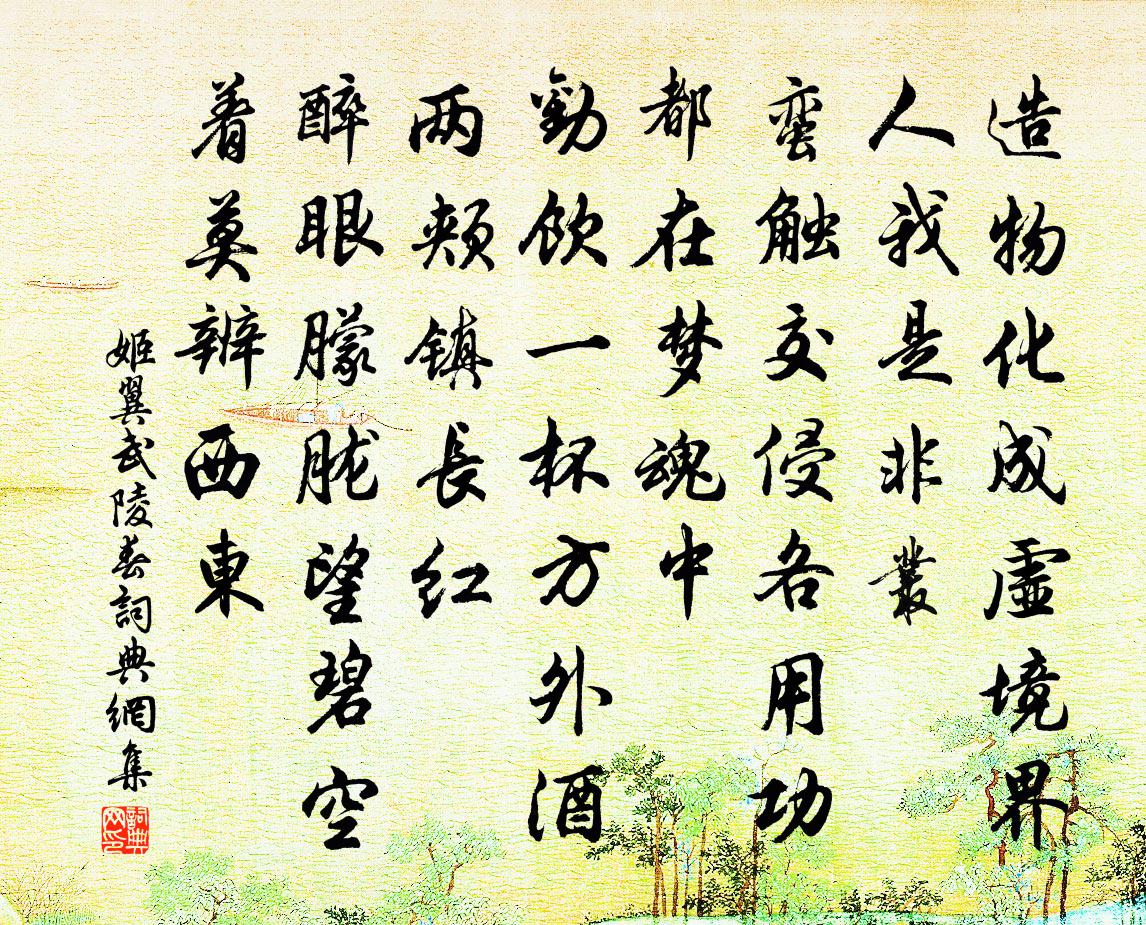 造物化成虚境界
人我是非叢
蛮触交侵各用功
都在梦魂中
勸饮一杯方外酒
两颊镇長红
醉眼朦胧望碧空
着莫辨西東
姬翼武陵春詞典網集
詞典网印